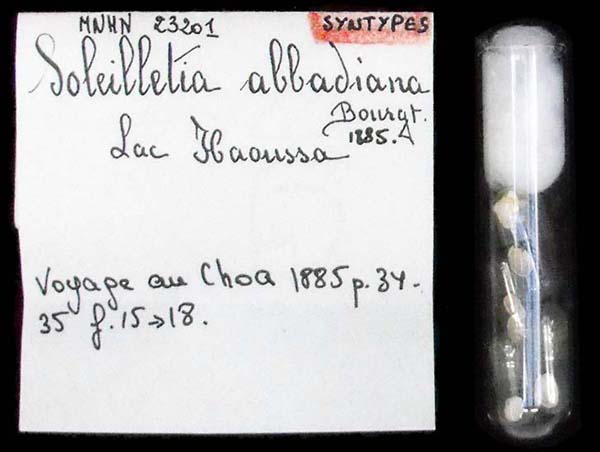 MNHN 23201 SYNTYPES
Soleilletia abbadiana
Bourgt.
1885.
Lac Haoussa
Voyage au Choa 1885 p. 34-
35 f. 15→18.